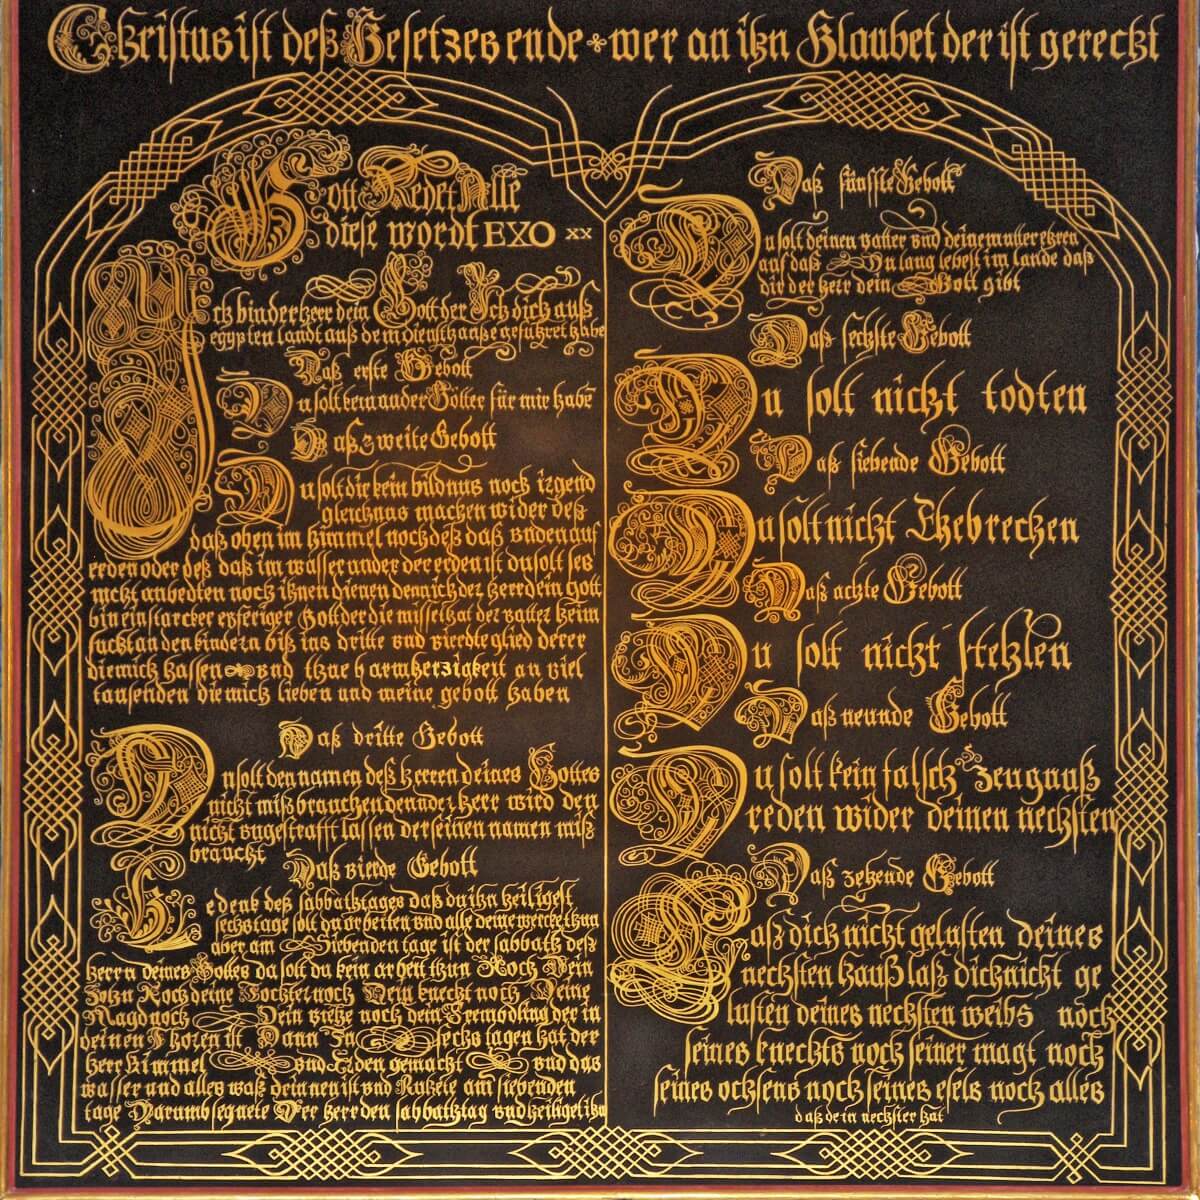 Christus ist deß Gesetzes ende wer an ihn Glaubet der ist gerecht
Gott Redet Alle
diese wordt EXO xx
Ich bin der herr dein Gott der Ich dich auß
egypten landt auß dem diensthauße gefuhret habe
Daß erste Gebott
Du solt kein ander Götter für mir habē
Daß zweite Gebott
Du solt dir kein bildnus noch irgend
gleichnus machen wider deß
daß oben im himmel noch deß daß unden auf
erden oder deß daß im wasser under der erden ist du solt sei
nicht anbedten noch ihnen dienen denn ich der herr dein Gott
bin ein starcker eyferiger Gott der die missethat der vatter heim
sucht an den kindern biß ins dritte und vierdte glied derer
die mich hassen und thue barmherzigkeit an viel
tausenden die mich lieben und meine gebott haben
Daß dritte Gebott
Du solt den namen deß herren deines Gottes
nicht mißbrauchen denn der herr wird den
nicht ungestrafft lassen der seinen namen miß
braucht
Daß vierde Gebott
Gedenk deß sabbathtages daß du ihn heiligest
sechs tage solt du arbeiten und alle deine wercke thun
aber am Siebenden tage ist der sabbath deß
herrn deines Gottes da solt du kein arbeit thun Noch Dein
Sohn Noch deine Tochter noch Dein knecht noch Deine
Magd noch Dein viehe noch dein Frembdling der in
deinen Thoren ist Dann In sechs tagen hat der
herr himmel und Erden gemacht und das
wasser und alles waß dein nen ist und Ruhete am siebenden
tage Darumb segnete Der herr den sabbathtag und heiliget ihn
Daß fünffte Gebott
Du solt deinen vatter und deine mutter ehren
auf daß Du lang lebest im lande daß
dir der herr dein Gott gibt
Daß sechste Gebott
Du solt nicht todten
Daß siebende Gebott
Du solt nicht Ehebrechen
Daß achte Gebott
Du solt nicht stehlen
Daß neunde Gebott
Du solt kein falsch zeugnuß
reden wider deinen nechsten
Daß zehende Gebott
Laß dich nicht gelusten deines
nechsten hauß laß dich nicht ge
lusten deines nechsten weibs noch
seines knechts noch seiner magt noch
seines ochsens noch seines esels noch alles
daß dein nechster hat